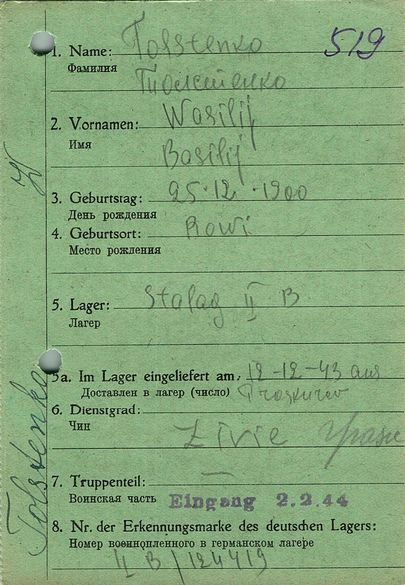 519
1. Name: Tolstenko
Фамилия
Толстенко
2. Vornamen: Wasilij
Имя
Basilij
3. Geburtstag: 25.12.1900
День рождения
4. Geburtsort: Rowi
Место рождения
5. Lager: Stalag II B
Лагер
5a. Im Lager eingeliefert am, 12-12-43 aus
Доставлен в лагер (число) Proskurov
6. Dienstgrad:
Чин
Zivie
7. Truppenteil: —
Воинская часть Eingang 2.2.44
8. Nr. der Erkennungsmarke des deutschen Lagers:
Номер военнопленного в германском лагере
II B / 124419
Tolstenko